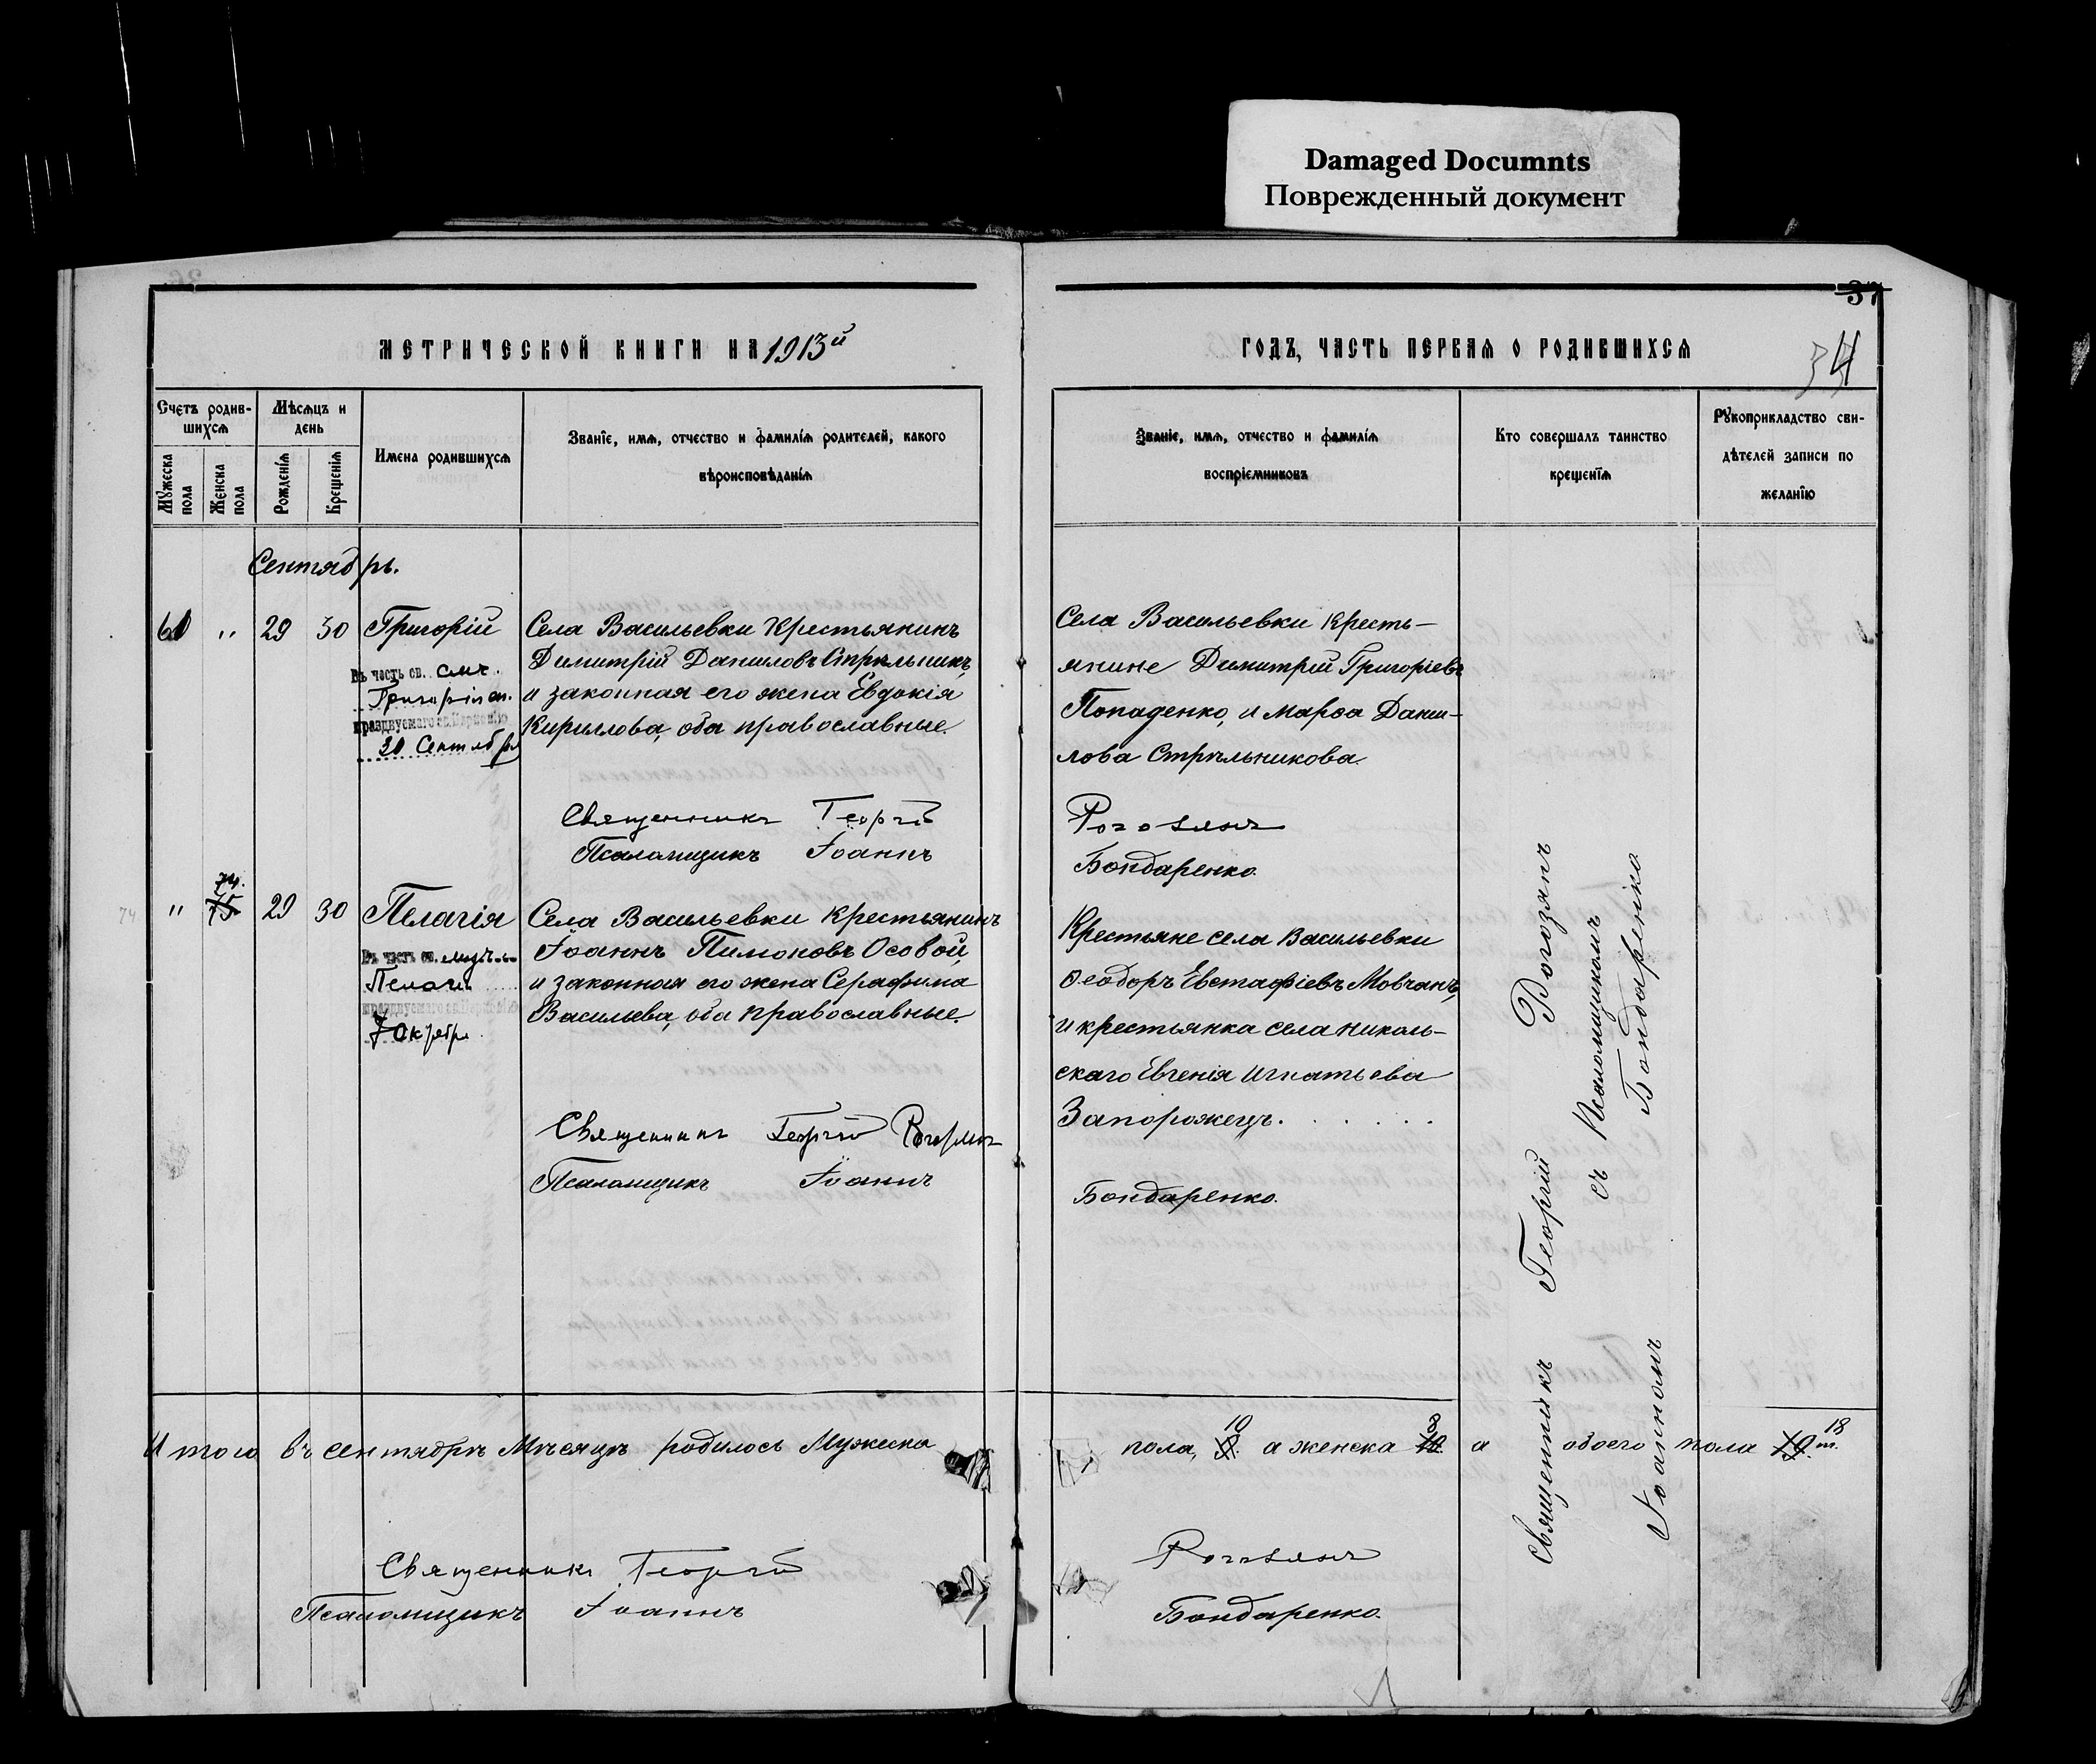 Damaged Documnts
Поврежденный документ
37
МЕТРИЧЕСКОЙ КНИГИ НА 1913й
ГОДЪ, ЧАСТЬ ПЕРВАЯ О РОДИВШИХСЯ
34
Счетъ родив-
шихся
Мужеска
пола
Женска
пола
Мѣсяцъ и
день
Рожденія
Крещенія
Имена родившихся
Званіе, имя, отчество и фамилія родителей, какого
вѣроисповѣданія
Званіе, имя, отчество и фамилія
воспріемниковъ
Кто совершалъ таинство
крещенія
Рукоприкладство сви-
дѣтелей записи по
желанію
Сентябрь.
61 " 29 30 Григорій
Въ честь св. смч.
Григорія еп.
празднуемаго св. Церковію
30 Сентября
Села Васильевки Крестьянинъ
Димитрій Даниловъ Стрѣльникъ,
и законная его жена Евдокія
Кириллова, оба православные.
Села Васильевки Кресть-
янине Димитрій Григоріевъ
Попаденко, и Марѳа Дани-
лова Стрѣльникова.
Священникъ Георгій
Рогозянъ
Псаломщикъ Іоаннъ
Бондаренко.
74
" 74. 75. 29 30 Пелагія
Въ честь св.
Пелагіи
празднуемаго св. Церковію
7 Октября
Села Васильевки Крестьянинъ
Іоаннъ Пимоновъ Осовой,
и законная его жена Серафима
Васильева, оба православные.
Крестьяне села Васильевки
Ѳеодоръ Евстафіевъ Мовчанъ,
и крестьянка села Николь-
скаго Евгенія Игнатьева
Запорожецъ.
Священникъ Георгій Рогозянъ
Псаломщикъ Іоаннъ
Бондаренко.
Священникъ Георгій Рогозянъ
съ Псаломщикомъ
Іоанномъ Бондаренко
Итого въ Сентябрѣ Мѣсяцѣ родилось Мужеска
пола, 10 а женска 8 а обоего пола 18
Священникъ Георгій
Рогозянъ
Псаломщикъ Іоаннъ
Бондаренко.